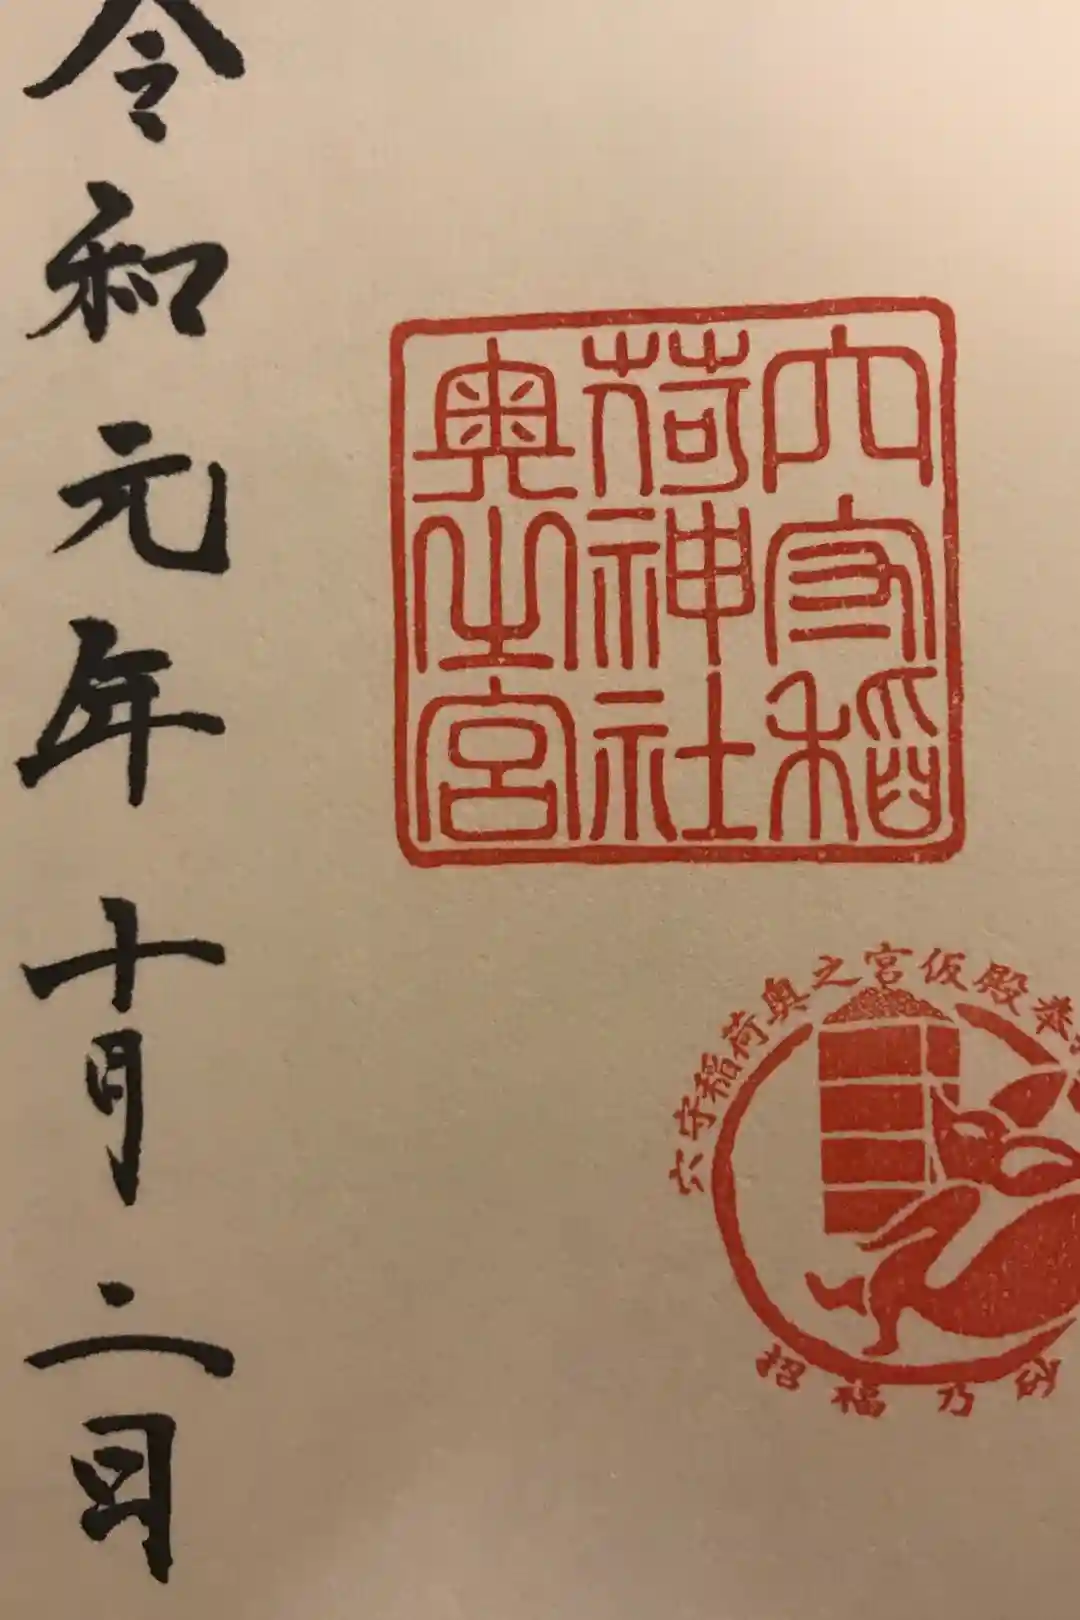 穴守稲
荷神社
奥之宮
穴守稲荷奥之宮仮殿奉
招福乃砂
令和元年十月二日